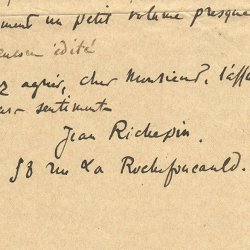 ment un petit volume presque
édité
z agréer, cher Monsieur, l'affe
sentiments
Jean Richepin.
58 rue La Rochefoucauld.